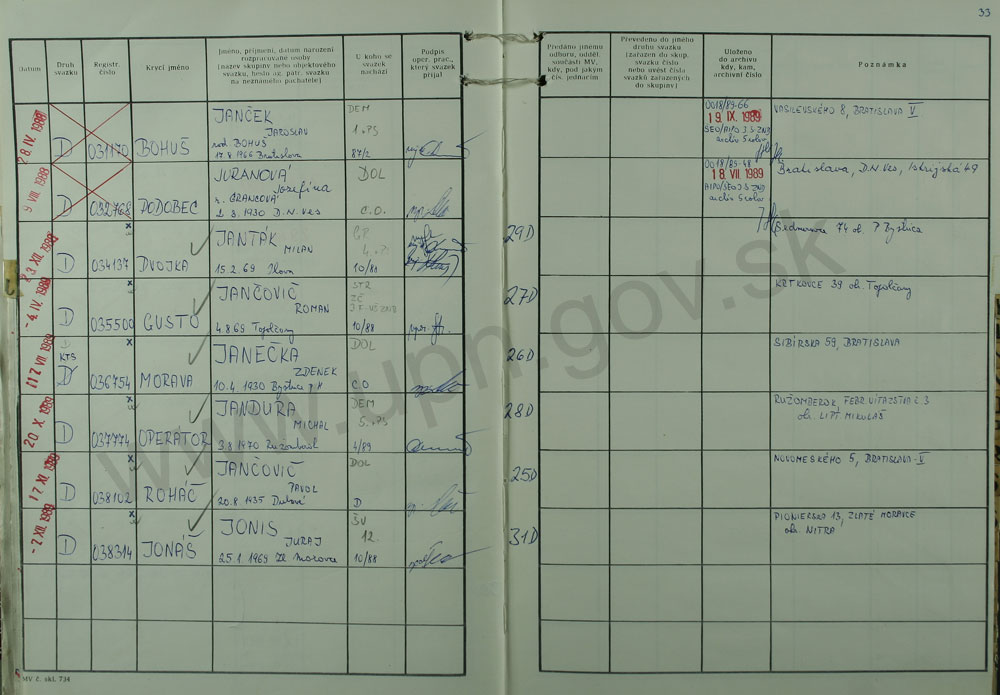 33
Datum
Druh svazku
Registr. číslo
Krycí jméno
Jméno, příjmení, datum narození
rozpracované osoby
(název skupiny nebo objektového
svazku, heslo ag. patr. svazku
na neznámého pachatele)
U koho se
svazek
nachází
Podpis
oper. prac.,
který svazek
přijal
Předáno jinému
odboru, odděl.
součásti MV,
kdy, pod jakým
čís. jednacím
Převedeno do jiného
druhu svazku
(zařazen do skup.
svazku číslo
nebo uvést čísla
svazků zařazených
do skupiny)
Uloženo
do archivu
kdy, kam,
archivní číslo
Poznámka
28. IV. 1988
D
031170
BOHUŠ
JANČEK
JAROSLAV
rod. BOHUŠ
17.8.1966 Bratislava
DEM
1.75
87/2
0018/89-66
19. IX. 1989
VASILEVSKÉHO 8, BRATISLAVA V
9 VIII. 1988
D
032768
DODOBEC
JURANOVÁ
Jozefína
r. GRANCOVÁ
2.3.1930 D.N.Ves
DOL
C.O.
0018/89-48
18. VII 1989
Bratislava, D.N.Ves, Iskrijská 49
XII. 1988
D
034137
DVOJKA
JANTÁK
MILAN
15.2.69 Ilava
10/88
29D
74 ok. P. Bystrica
-4. IV. 1989
D
035500
GUSTO
JANČOVIČ
ROMAN
4.8.69 Topoľčany
STR
10/88
27D
KRTKOVCE 39 ok. Topoľčany
VII 1989
KTS
D
036754
MORAVA
JANEČKA
ZDENEK
10.4.1930 Bystrica p.H
DOL
C.O
26D
SIBÍRSKA 59, BRATISLAVA
20 X. 1989
D
037774
OPERATOR
JANDURA
MICHAL
3.8.1970 Ružomberok
DEM
5.75
4/89
28D
RUŽOMBEROK FEBR. VÍŤAZSTVA
ok. LIPT. MIKULÁŠ
XI. 1989
D
038102
ROHÁČ
JANČOVIČ
PAVOL
20.8.1935 Dubové
DOL
D
25D
NOVOMESKÉHO 5, BRATISLAVA-V
-7 XII. 1989
D
038314
JONÁŠ
JONIS
JURAJ
25.1.1969 Zl. Moravce
ŠV
12.
10/88
31D
PIONIERSKA 13, ZLATÉ MORAVCE
ok. NITRA
MV č. skl. 734
www.upn.gov.sk